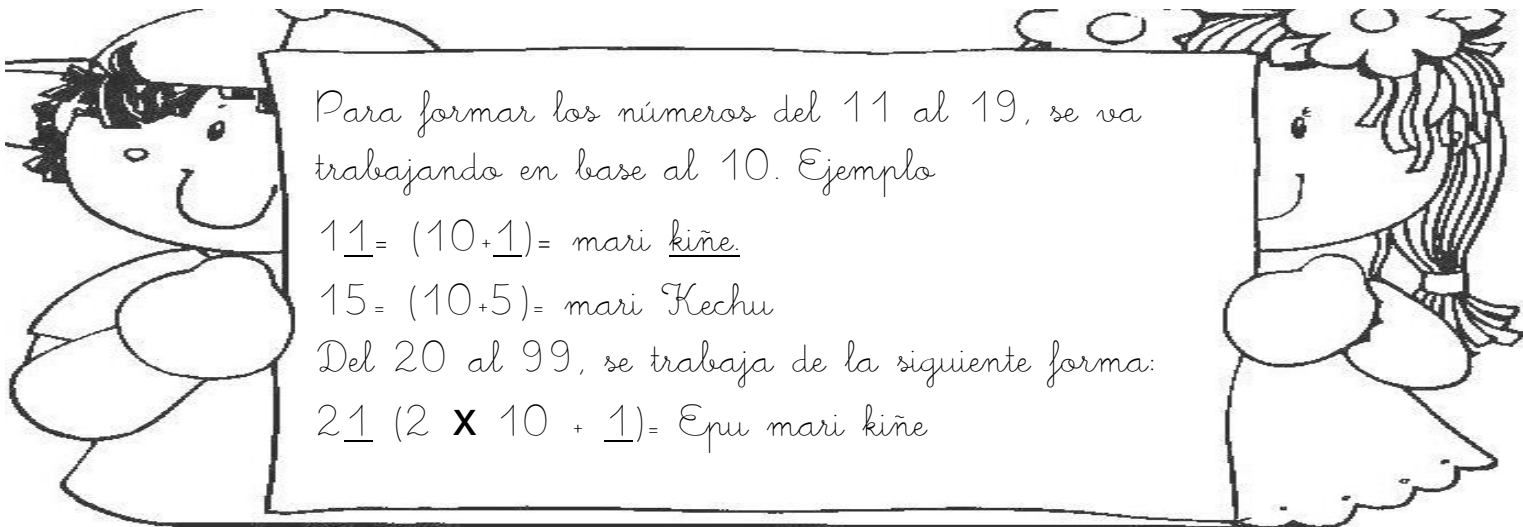 Para formar los números del 11 al 19, se va
trabajando en base al 10. Ejemplo
11= (10+1)= mari kiñe.
15= (10+5)= mari Kechu
Del 20 al 99, se trabaja de la siguiente forma:
21 (2 x 10 + 1)= Epu mari kiñe